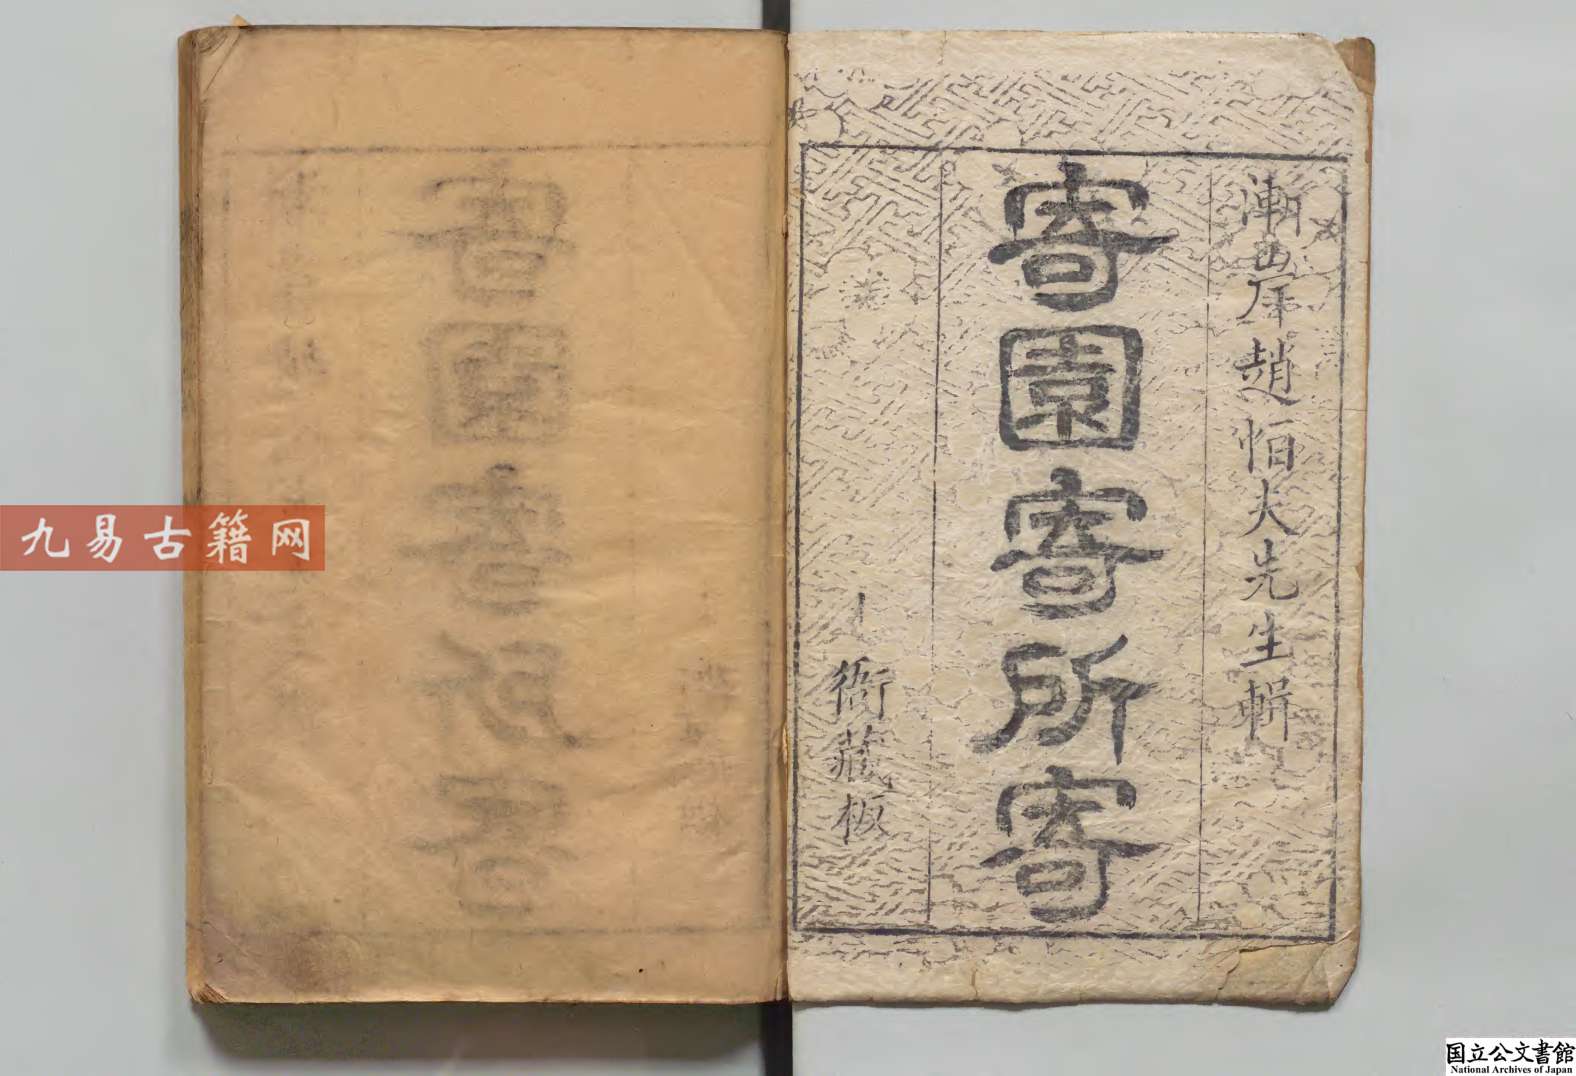 漸岸趙恒夫先生輯
寄園寄所寄
衙藏板
九易古籍网
国立公文書館
National Archives of Japan